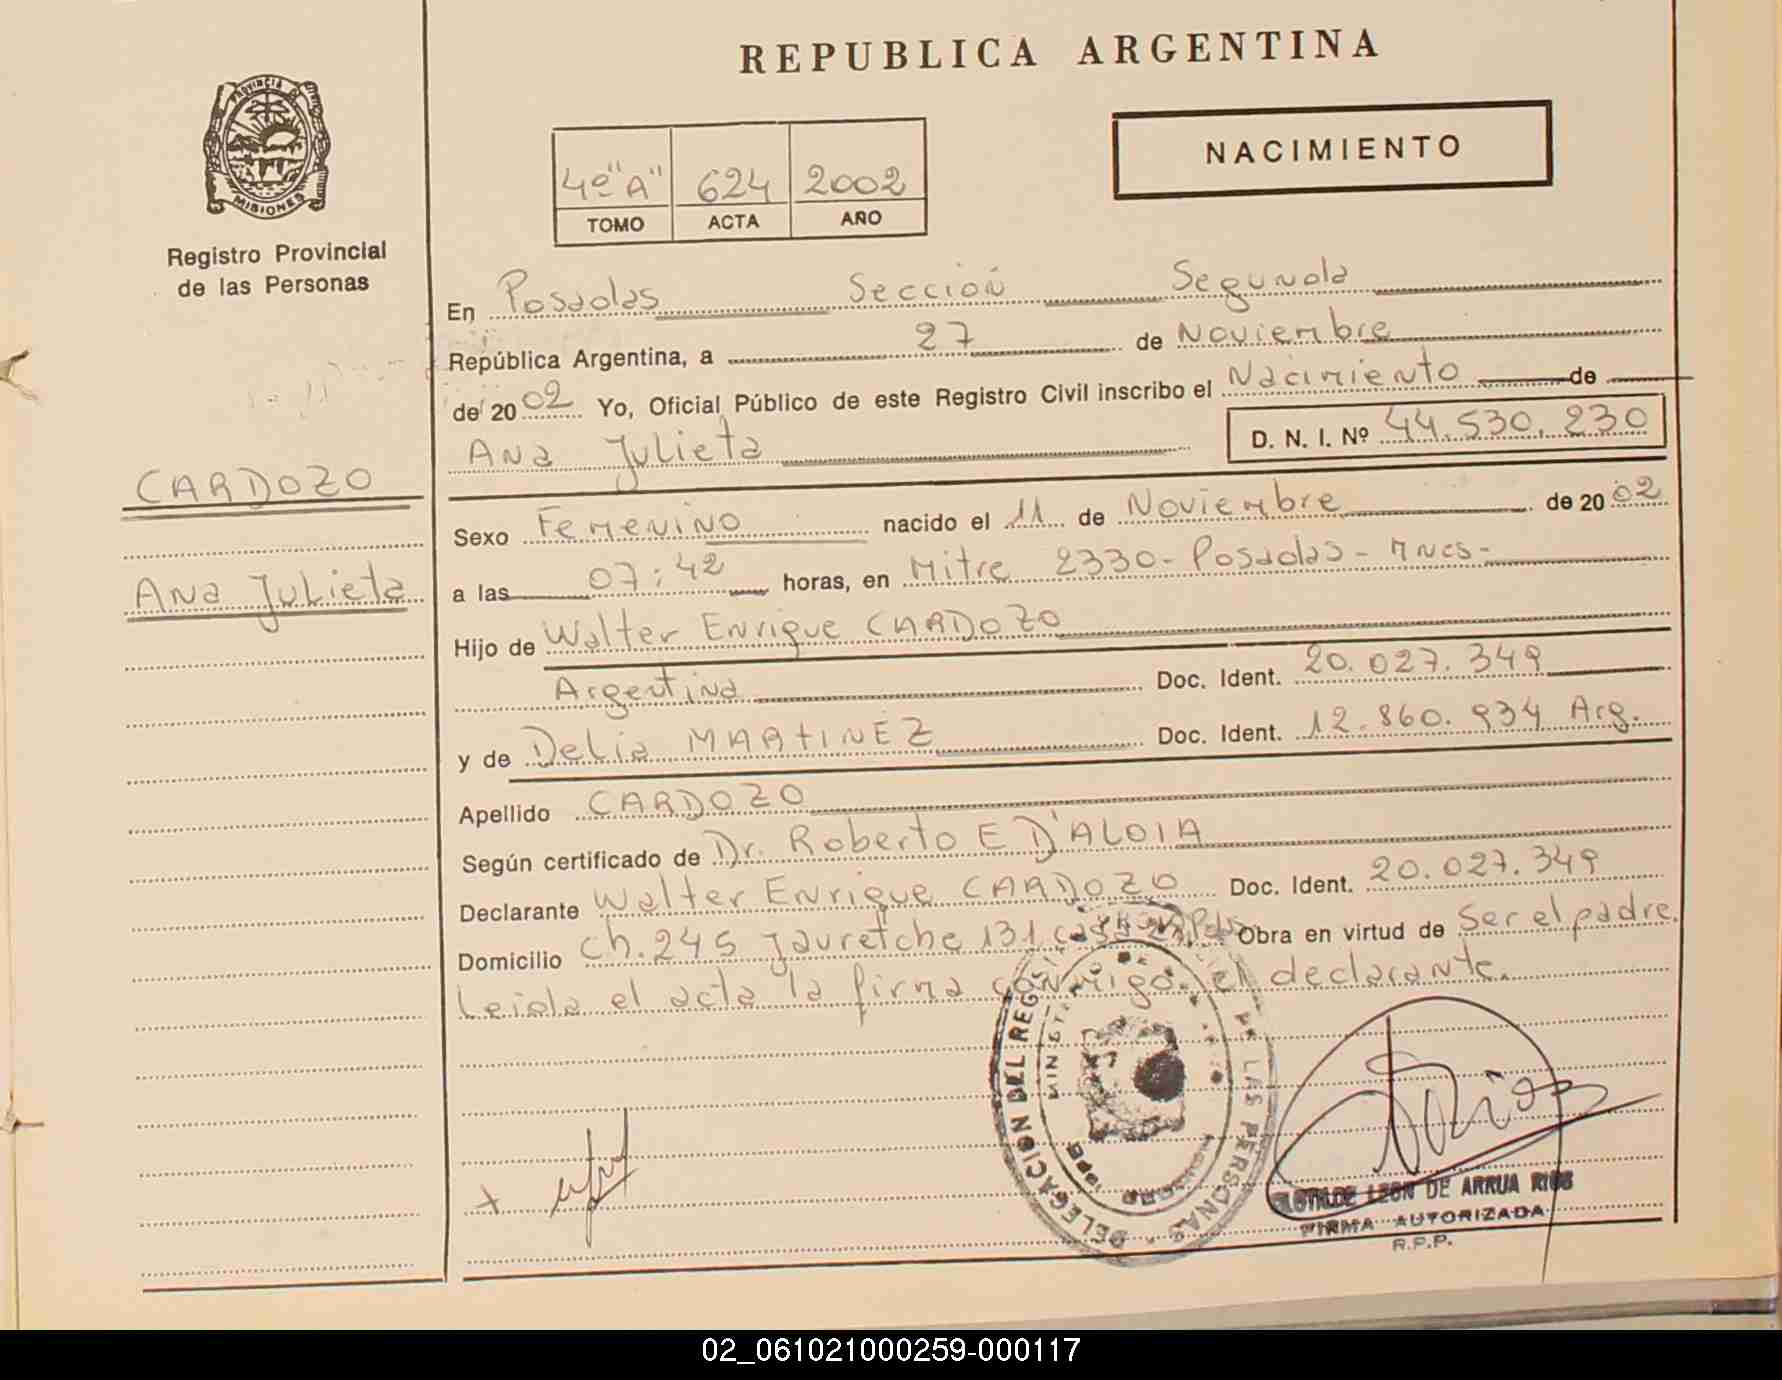 REPUBLICA ARGENTINA
PROVINCIA DE
MISIONES
Registro Provincial
de las Personas
NACIMIENTO
4º "A" 624 2002
TOMO ACTA AÑO
En Posadas Sección Segunda
República Argentina, a 27 de Noviembre
de 2002 Yo, Oficial Público de este Registro Civil inscribo el Nacimiento de
Ana Julieta D. N. I. Nº 44.530.230
CARDOZO
Ana Julieta
Sexo Femenino nacido el 11 de Noviembre de 2002
a las 07:42 horas, en Mitre 2330- Posadas- Mnes-
Hijo de Walter Enrique CARDOZO
Argentina Doc. Ident. 20.027.349
y de Delia MARTINEZ Doc. Ident. 12.860.934 Arg.
Apellido CARDOZO
Según certificado de Dr. Roberto E D'ALOIA
Declarante Walter Enrique CARDOZO Doc. Ident. 20.027.349
Domicilio Ch. 245 Jauretche 131 casa Obra en virtud de Ser el padre.
Leida el acta la firma conmigo el declarante.
DELEGACION DEL REGISTRO DE LAS PERSONAS
CLOTILDE LEON DE ARRUA RIOS
FIRMA AUTORIZADA
R.P.P.
02_061021000259-000117